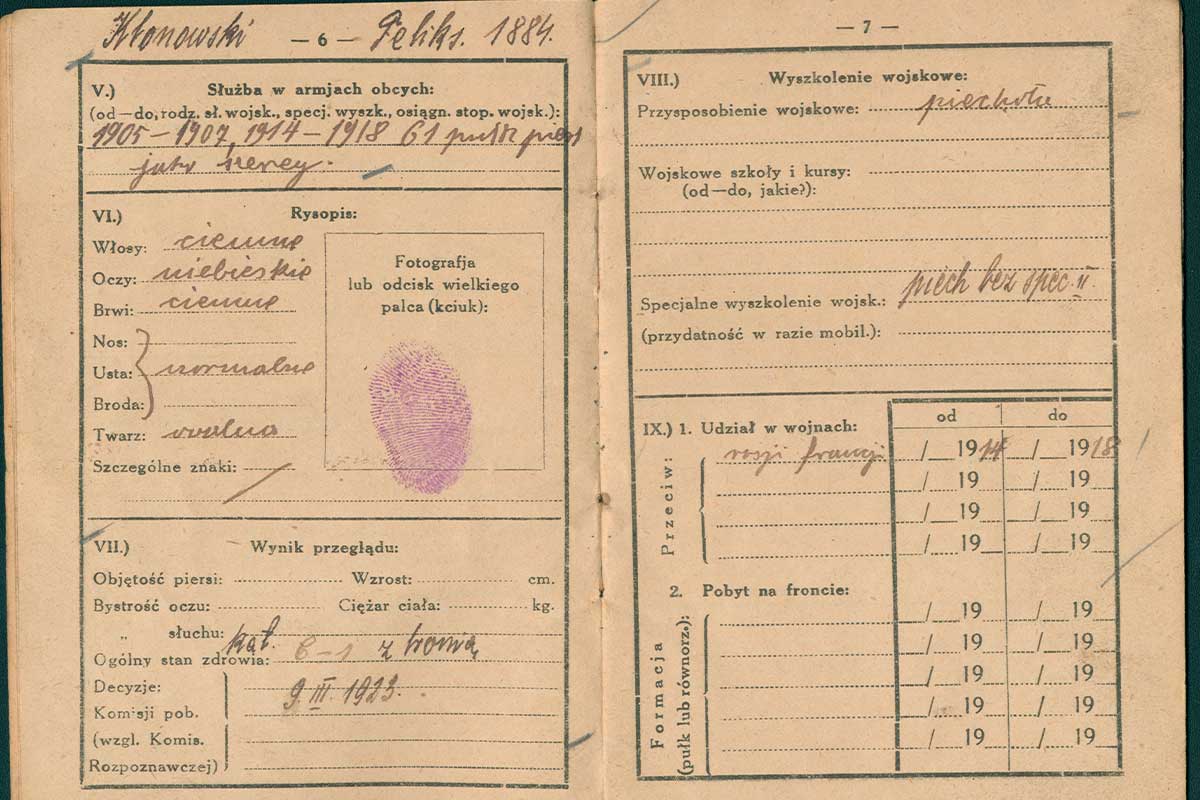 Kłonowski — 6 — Feliks. 1884.
V.) Służba w armjach obcych:
(od—do, rodz. sł. wojsk., specj. wyszk., osiągn. stop. wojsk.):
1905 – 1907, 1914 – 1918 61 pułk piech
jako
VI.) Rysopis:
Włosy: ciemne
Oczy: niebieskie
Brwi: ciemne
Nos:
Usta: normalne
Broda:
Twarz: owalna
Szczególne znaki:
Fotografja
lub odcisk wielkiego
palca (kciuk):
VII.) Wynik przeglądu:
Objętość piersi: Wzrost: cm.
Bystrość oczu: Ciężar ciała: kg.
„ słuchu: kat.
Ogólny stan zdrowia: C–1 z bronią
Decyzje: 9. III. 1923.
Komisji pob.
(wzgl. Komis.
Rozpoznawczej)
— 7 —
VIII.) Wyszkolenie wojskowe:
Przysposobienie wojskowe: piechota
Wojskowe szkoły i kursy:
(od—do, jakie?):
Specjalne wyszkolenie wojsk.: piech bez spec. II.
(przydatność w razie mobil.):
od do
IX.) 1. Udział w wojnach:
Przeciw:
rosji francji / 1914 / 1918
/ 19 / 19
/ 19 / 19
/ 19 / 19
2. Pobyt na froncie:
Formacja
(pułk lub równorz.):
/ 19 / 19
/ 19 / 19
/ 19 / 19
/ 19 / 19
/ 19 / 19